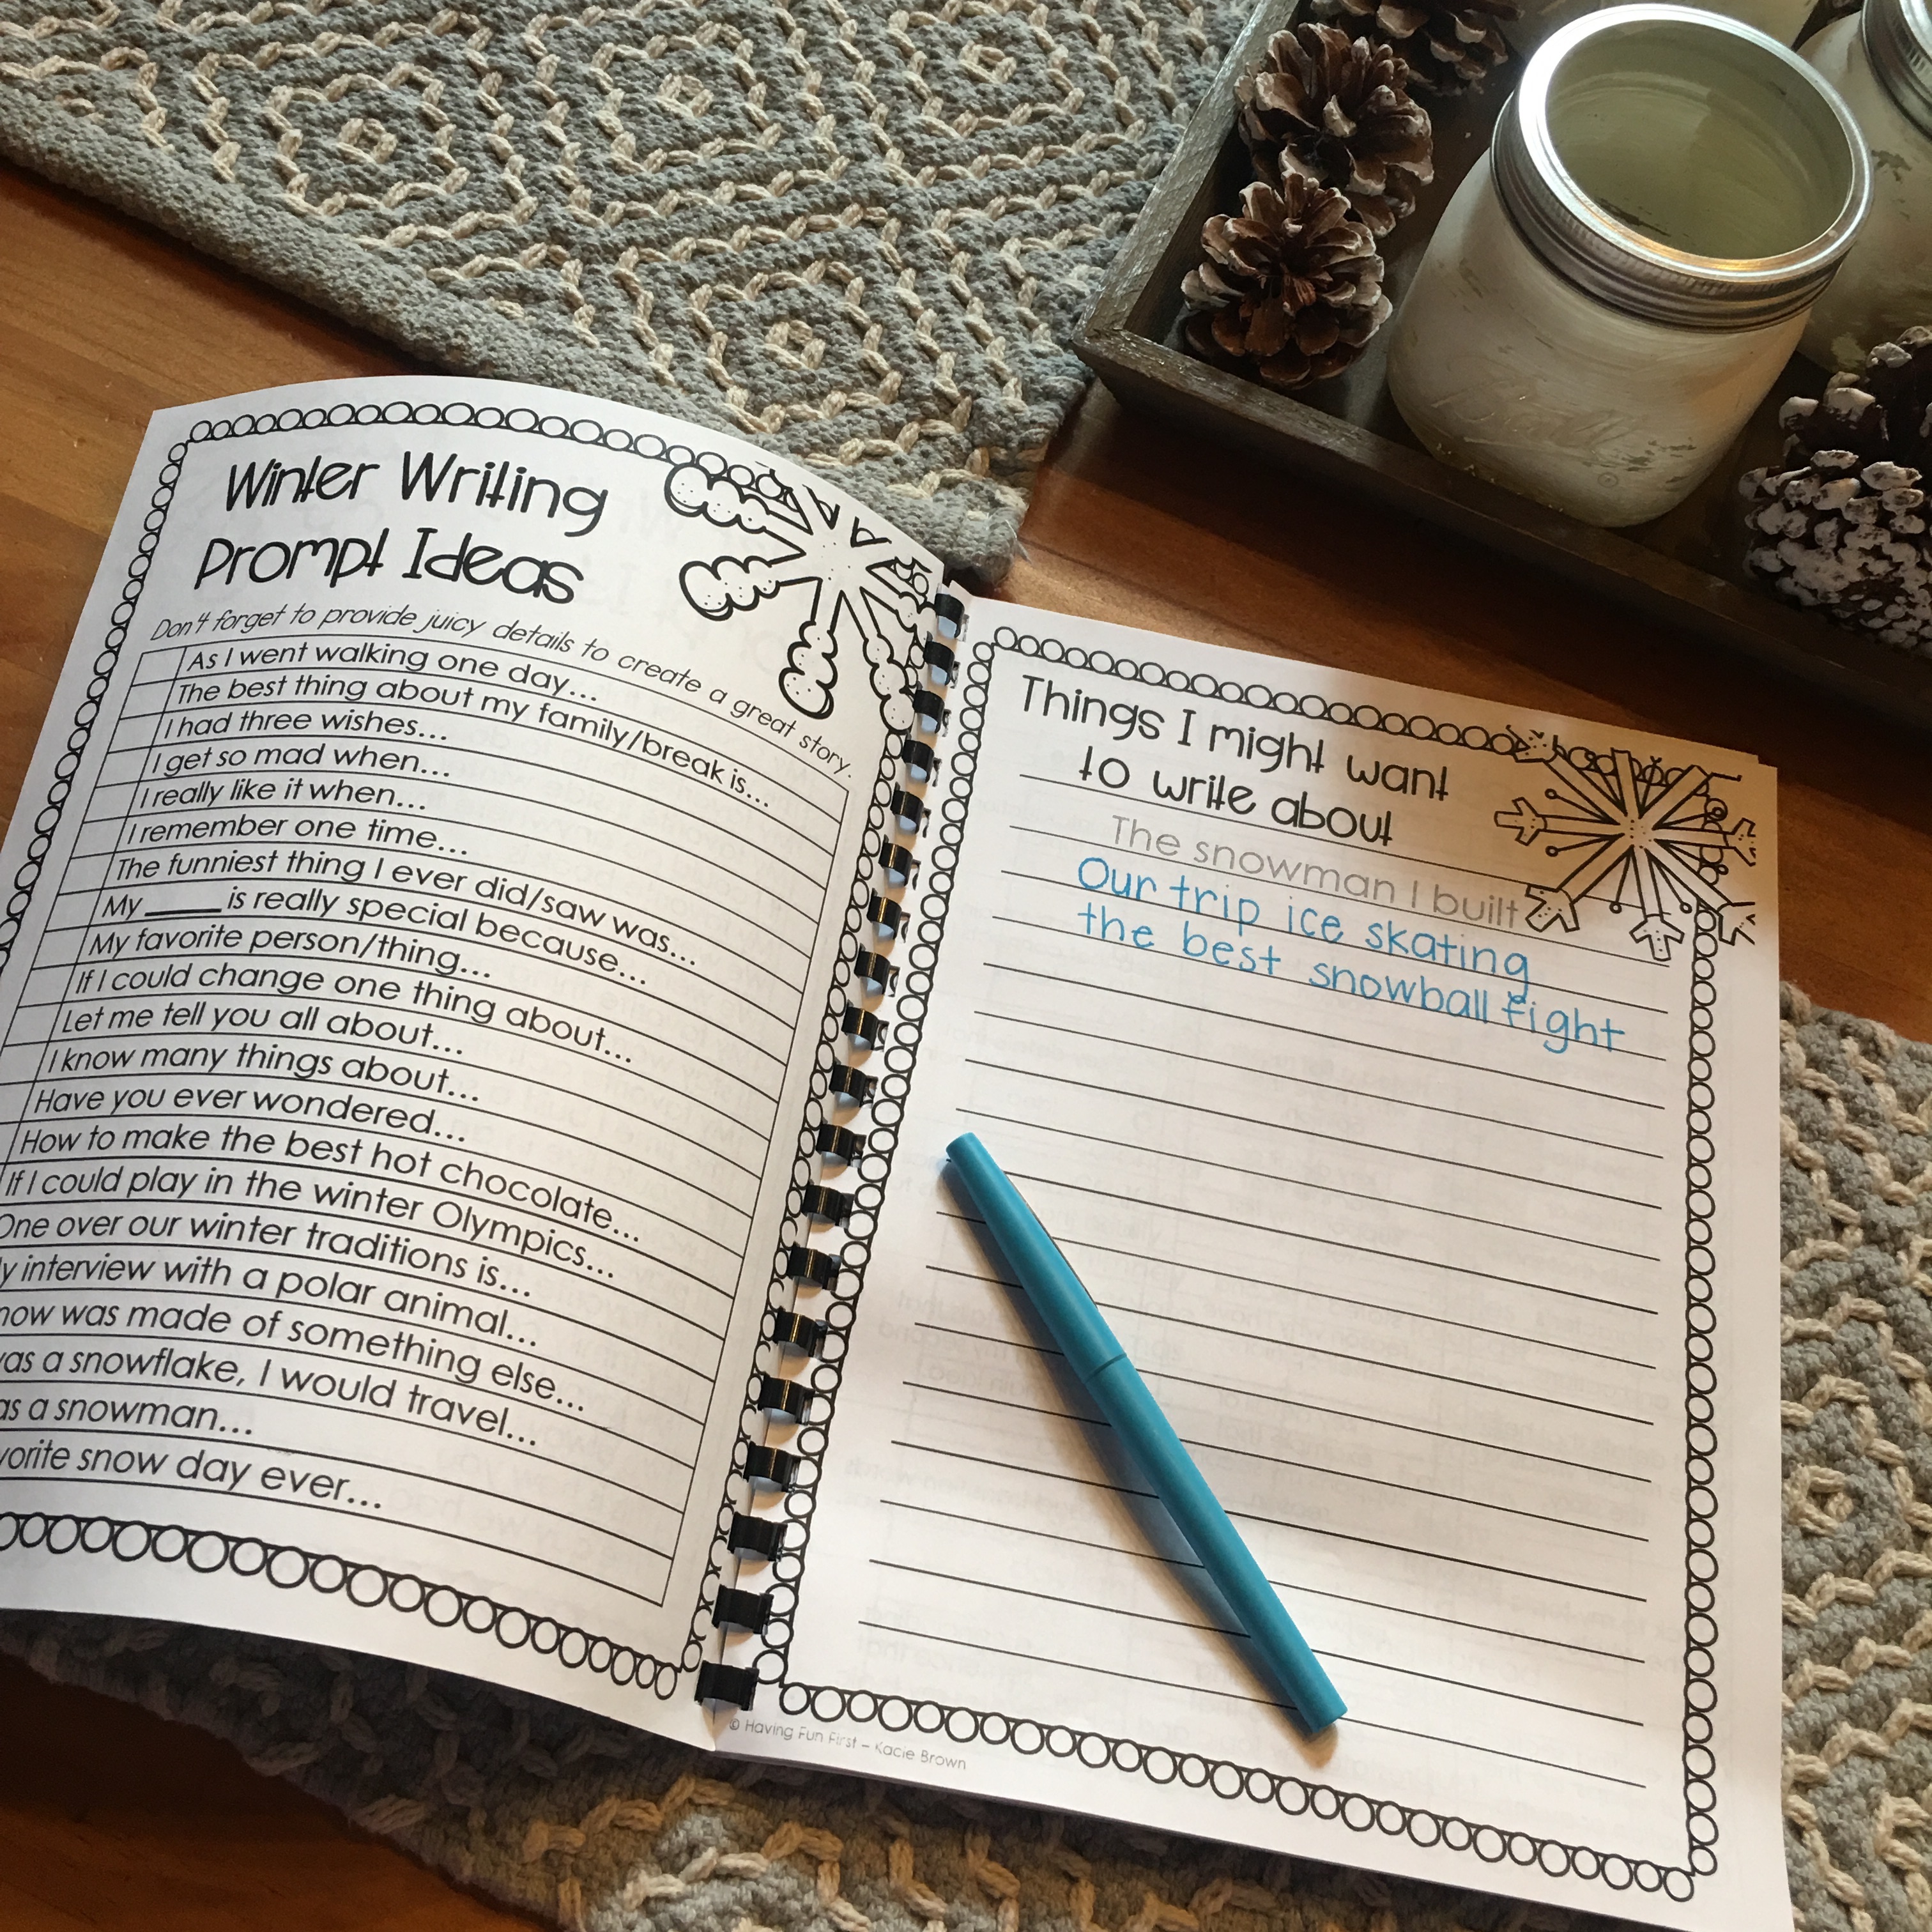 Winter Writing
Prompt Ideas
Don't forget to provide juicy details to create a great story.
As I went walking one day...
The best thing about my family/break is...
I had three wishes...
I get so mad when...
I really like it when...
I remember one time...
The funniest thing I ever did/saw was...
My _____ is really special because...
My favorite person/thing...
If I could change one thing about...
Let me tell you all about...
I know many things about...
Have you ever wondered...
How to make the best hot chocolate...
If I could play in the winter Olympics...
One over our winter traditions is...
interview with a polar animal...
was made of something else...
a snowflake, I would travel...
a snowman...
snow day ever...
Things I might want
to write about
The snowman I built
Our trip ice skating
the best snowball fight
© Having Fun First – Kacie Brown
Ball